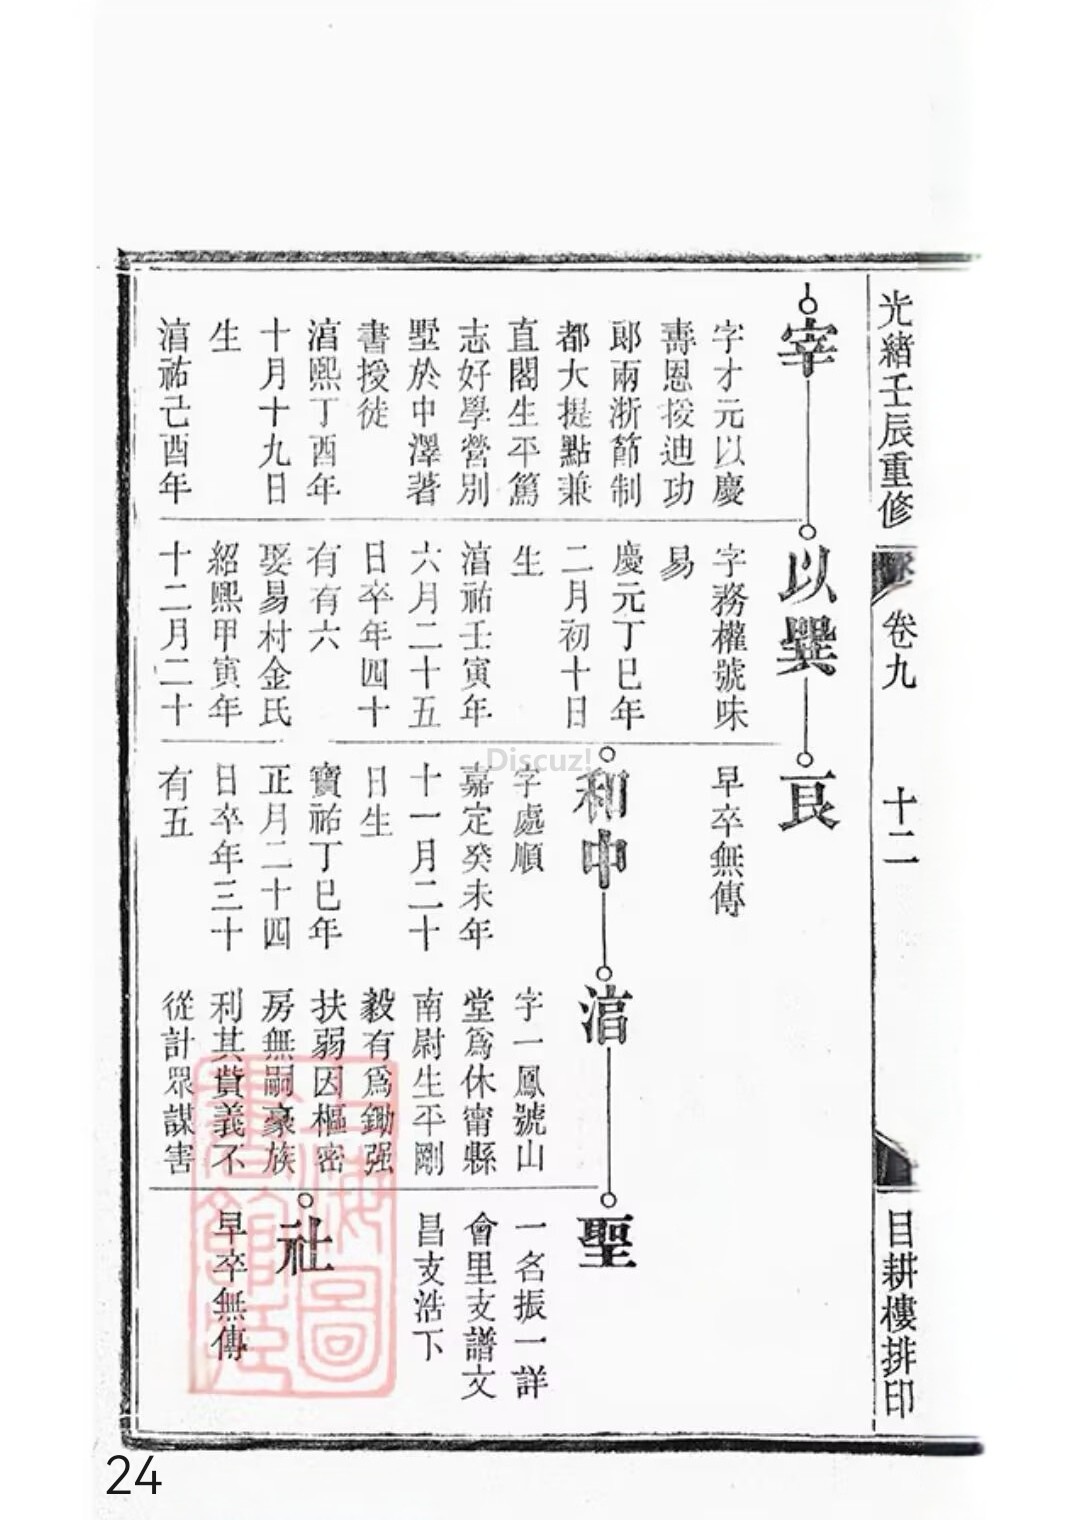 光緒壬辰重修
卷九
十二
目耕樓排印
宰
字才元以慶
壽恩授迪功
郎兩浙節制
都大提點兼
直閣生平篤
志好學營別
墅於中澤著
書授徒
湻熙丁酉年
十月十九日
生
湻祐己酉年
以巽
字務權號味
易
慶元丁巳年
二月初十日
生
湻祐壬寅年
六月二十五
日卒年四十
有有六
娶易村金氏
紹熙甲寅年
十二月二十
艮
早卒無傳
和中
字處順
嘉定癸未年
十一月二十
日生
寶祐丁巳年
正月二十四
日卒年三十
有五
湻
字一鳳號山
堂爲休甯縣
南尉生平剛
毅有爲鋤强
扶弱因樞密
房無嗣豪族
利其貲義不
從計眾謀害
聖
一名振一詳
會里支譜文
昌支浩下
社
早卒無傳
上海圖
書館藏
Discuz!
24